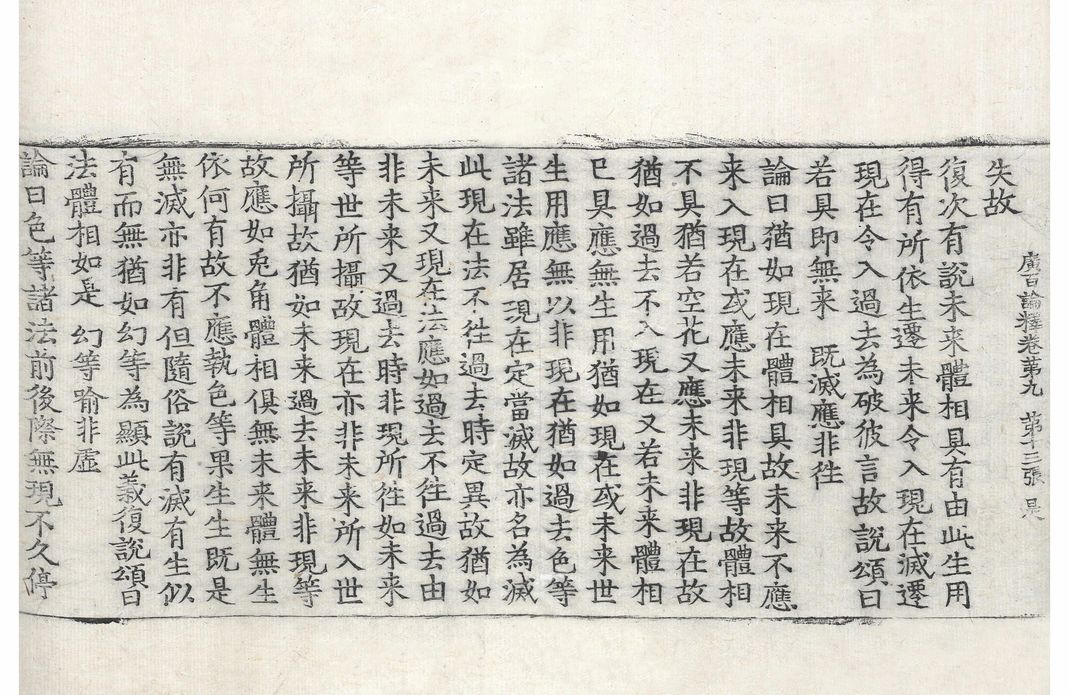 廣百論釋卷第九 第十三張 是
失故
復次有說未来體相具有由此生用
得有所依生遷未来令入現在滅遷
現在令入過去為破彼言故說頌曰
若具即無来 既滅應非徃
論曰猶如現在體相具故未来不應
来入現在或應未来非現等故體相
不具猶若空花又應未来非現在故
猶如過去不入現在又若未来體相
已具應無生用猶如現在或未来世
生用應無以非現在猶如過去色等
諸法雖居現在定當滅故亦名為滅
此現在法不徃過去時定異故猶如
未来又現在法應如過去不徃過去由
非未来又過去時非現所徃如未来
等世所攝故現在亦非未来所入世
所攝故猶如未来過去未来非現等
故應如兎角體相俱無未来體無生
依何有故不應執色等果生生既是
無滅亦非有但隨俗說有滅有生似
有而無猶如幻等為顯此義復說頌曰
法體相如是 幻等喻非虛
論曰色等諸法前後際無現不久停